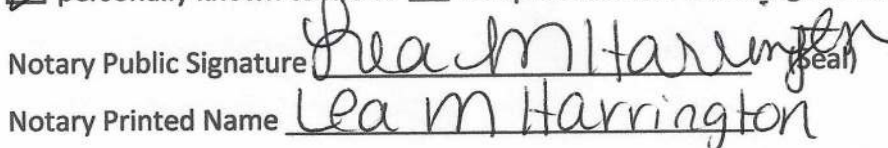 personally known
Notary Public Signature Lea M Harrington (Seal)
Notary Printed Name Lea M Harrington